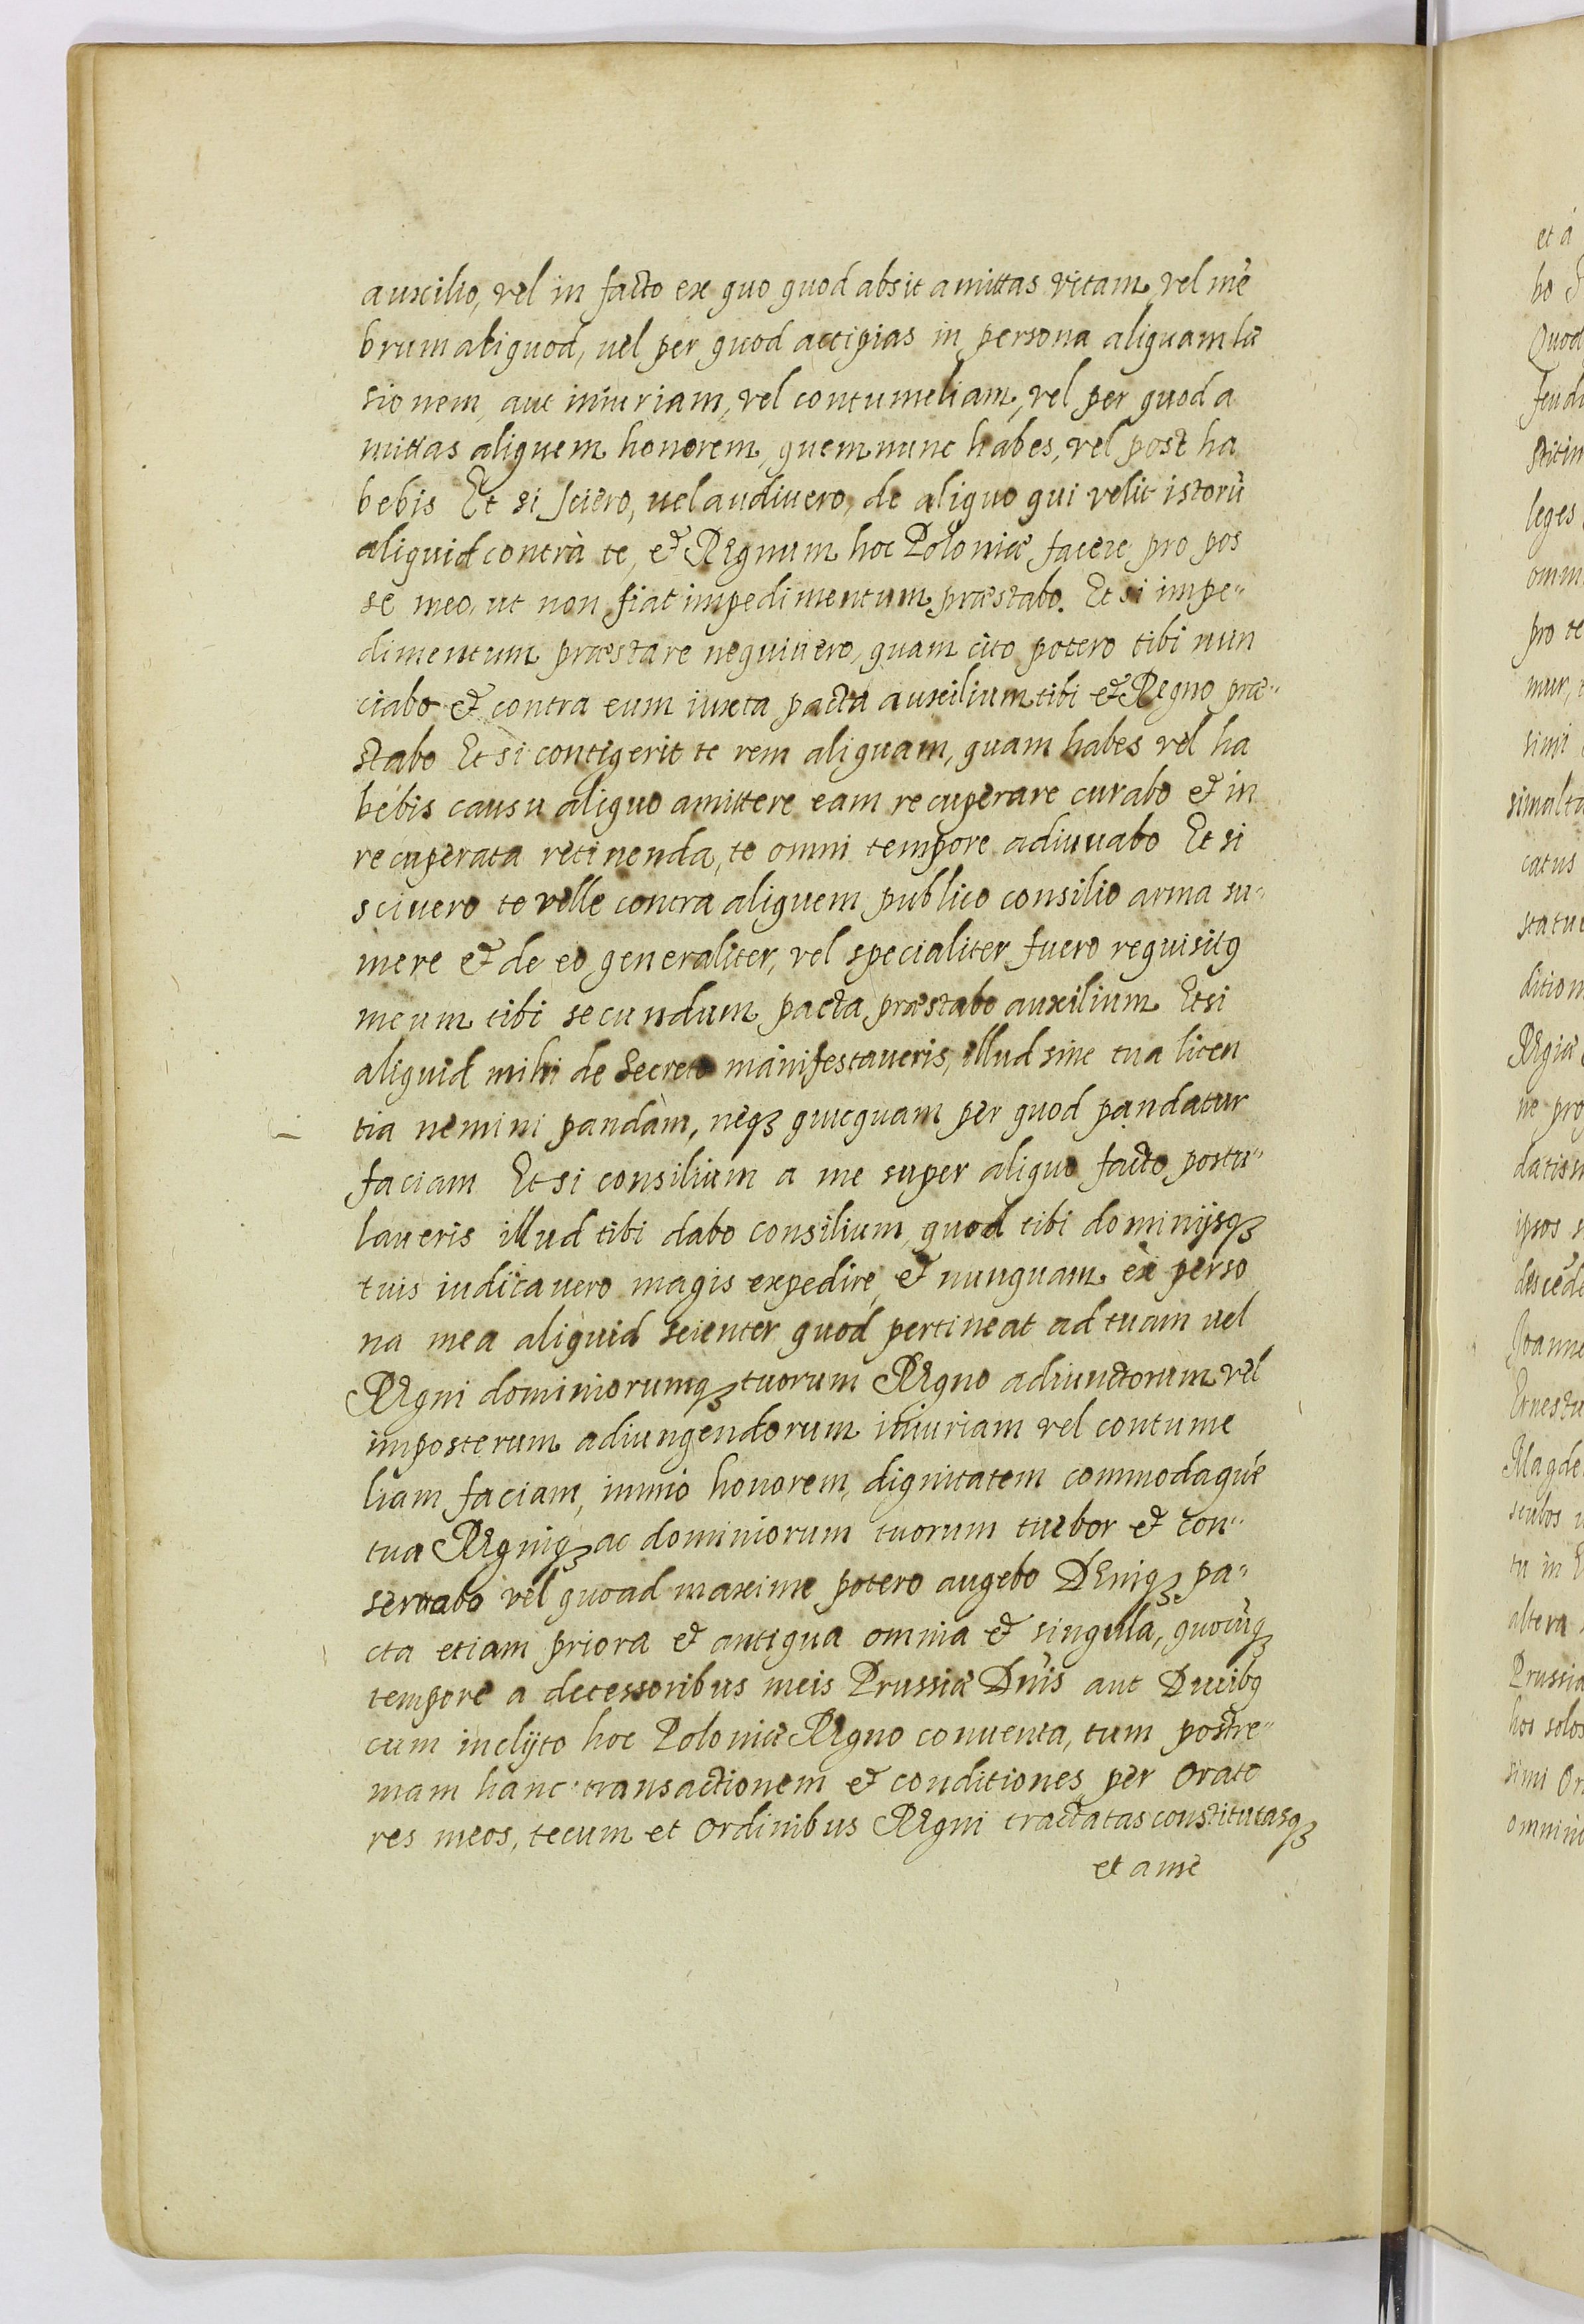 auxilio, vel in facto ex quo quod absit amittas vitam vel mē
brum aliquod, uel per quod accipias in persona aliquam læ
sionem, aut iniuriam, vel contumeliam, vel per quod a
mittas aliquem honorem, quem nunc habes, vel post ha
bebis Et si sciero, uel audiuero, de aliquo qui velit istorū
aliquid contrà te, et Regnum hoc Poloniæ facere pro pos
se meo, ut non fiat impedimentum præstabo. Et si impe-
dimentum præstare nequiuero, quam cito potero tibi nun
ciabo et contra eum iuxta pacta auxilium tibi et Regno præ-
stabo Et si contigerit te rem aliquam, quam habes vel ha
bebis causu aliquo amittere eam recuperare curabo et in
recuperata retinenda, te omni tempore adiuuabo Et si
sciuero te velle contra aliquem publico consilio arma su-
mere et de eo generaliter, vel specialiter fuero requisitꝰ
meum tibi secundum pacta præstabo auxilium Et si
aliquid mihi de secreto manifestaueris, illud sine tua licen
tia nemini pandam, neqꝫ quicquam per quod pandatur
faciam Et si consilium a me super aliquo facto postu-
laueris illud tibi dabo consilium, quod tibi dominijsqꝫ
tuis iudicauero magis expedire, et nunquam ex perso
na mea aliquid scienter quod pertineat ad tuam uel
Regni dominiorumqꝫ tuorum Regno adiunctorum vel
imposterum adiungendorum iniuriam vel contume
liam faciam, immò honorem, dignitatem commodaque
tua Regniqꝫ ac dominiorum tuorum tuebor et con-
seruabo vel quoad maxime potero augebo DEniqꝫ pa-
cta etiam priora et antiqua omnia et singula, quocūqꝫ
tempore a decessoribus meis Prussiæ Dnis aut Ducibꝰ
cum inclyto hoc Poloniæ Regno conuenta, tum postre-
mam hanc transactionem et conditiones per Orato
res meos, tecum et Ordinibus Regni tractatas constitutasqꝫ
et a me
et á
bo
Quod
feudi
leges
omni
pro te
mur,
simi
simulta
catus
statu
dition
Regiæ
ne pro
datis
ipsos
descēde
Joanne
Ernestu
Magde
tu in
altera
Prussia
hos solos
simi Or
omnino